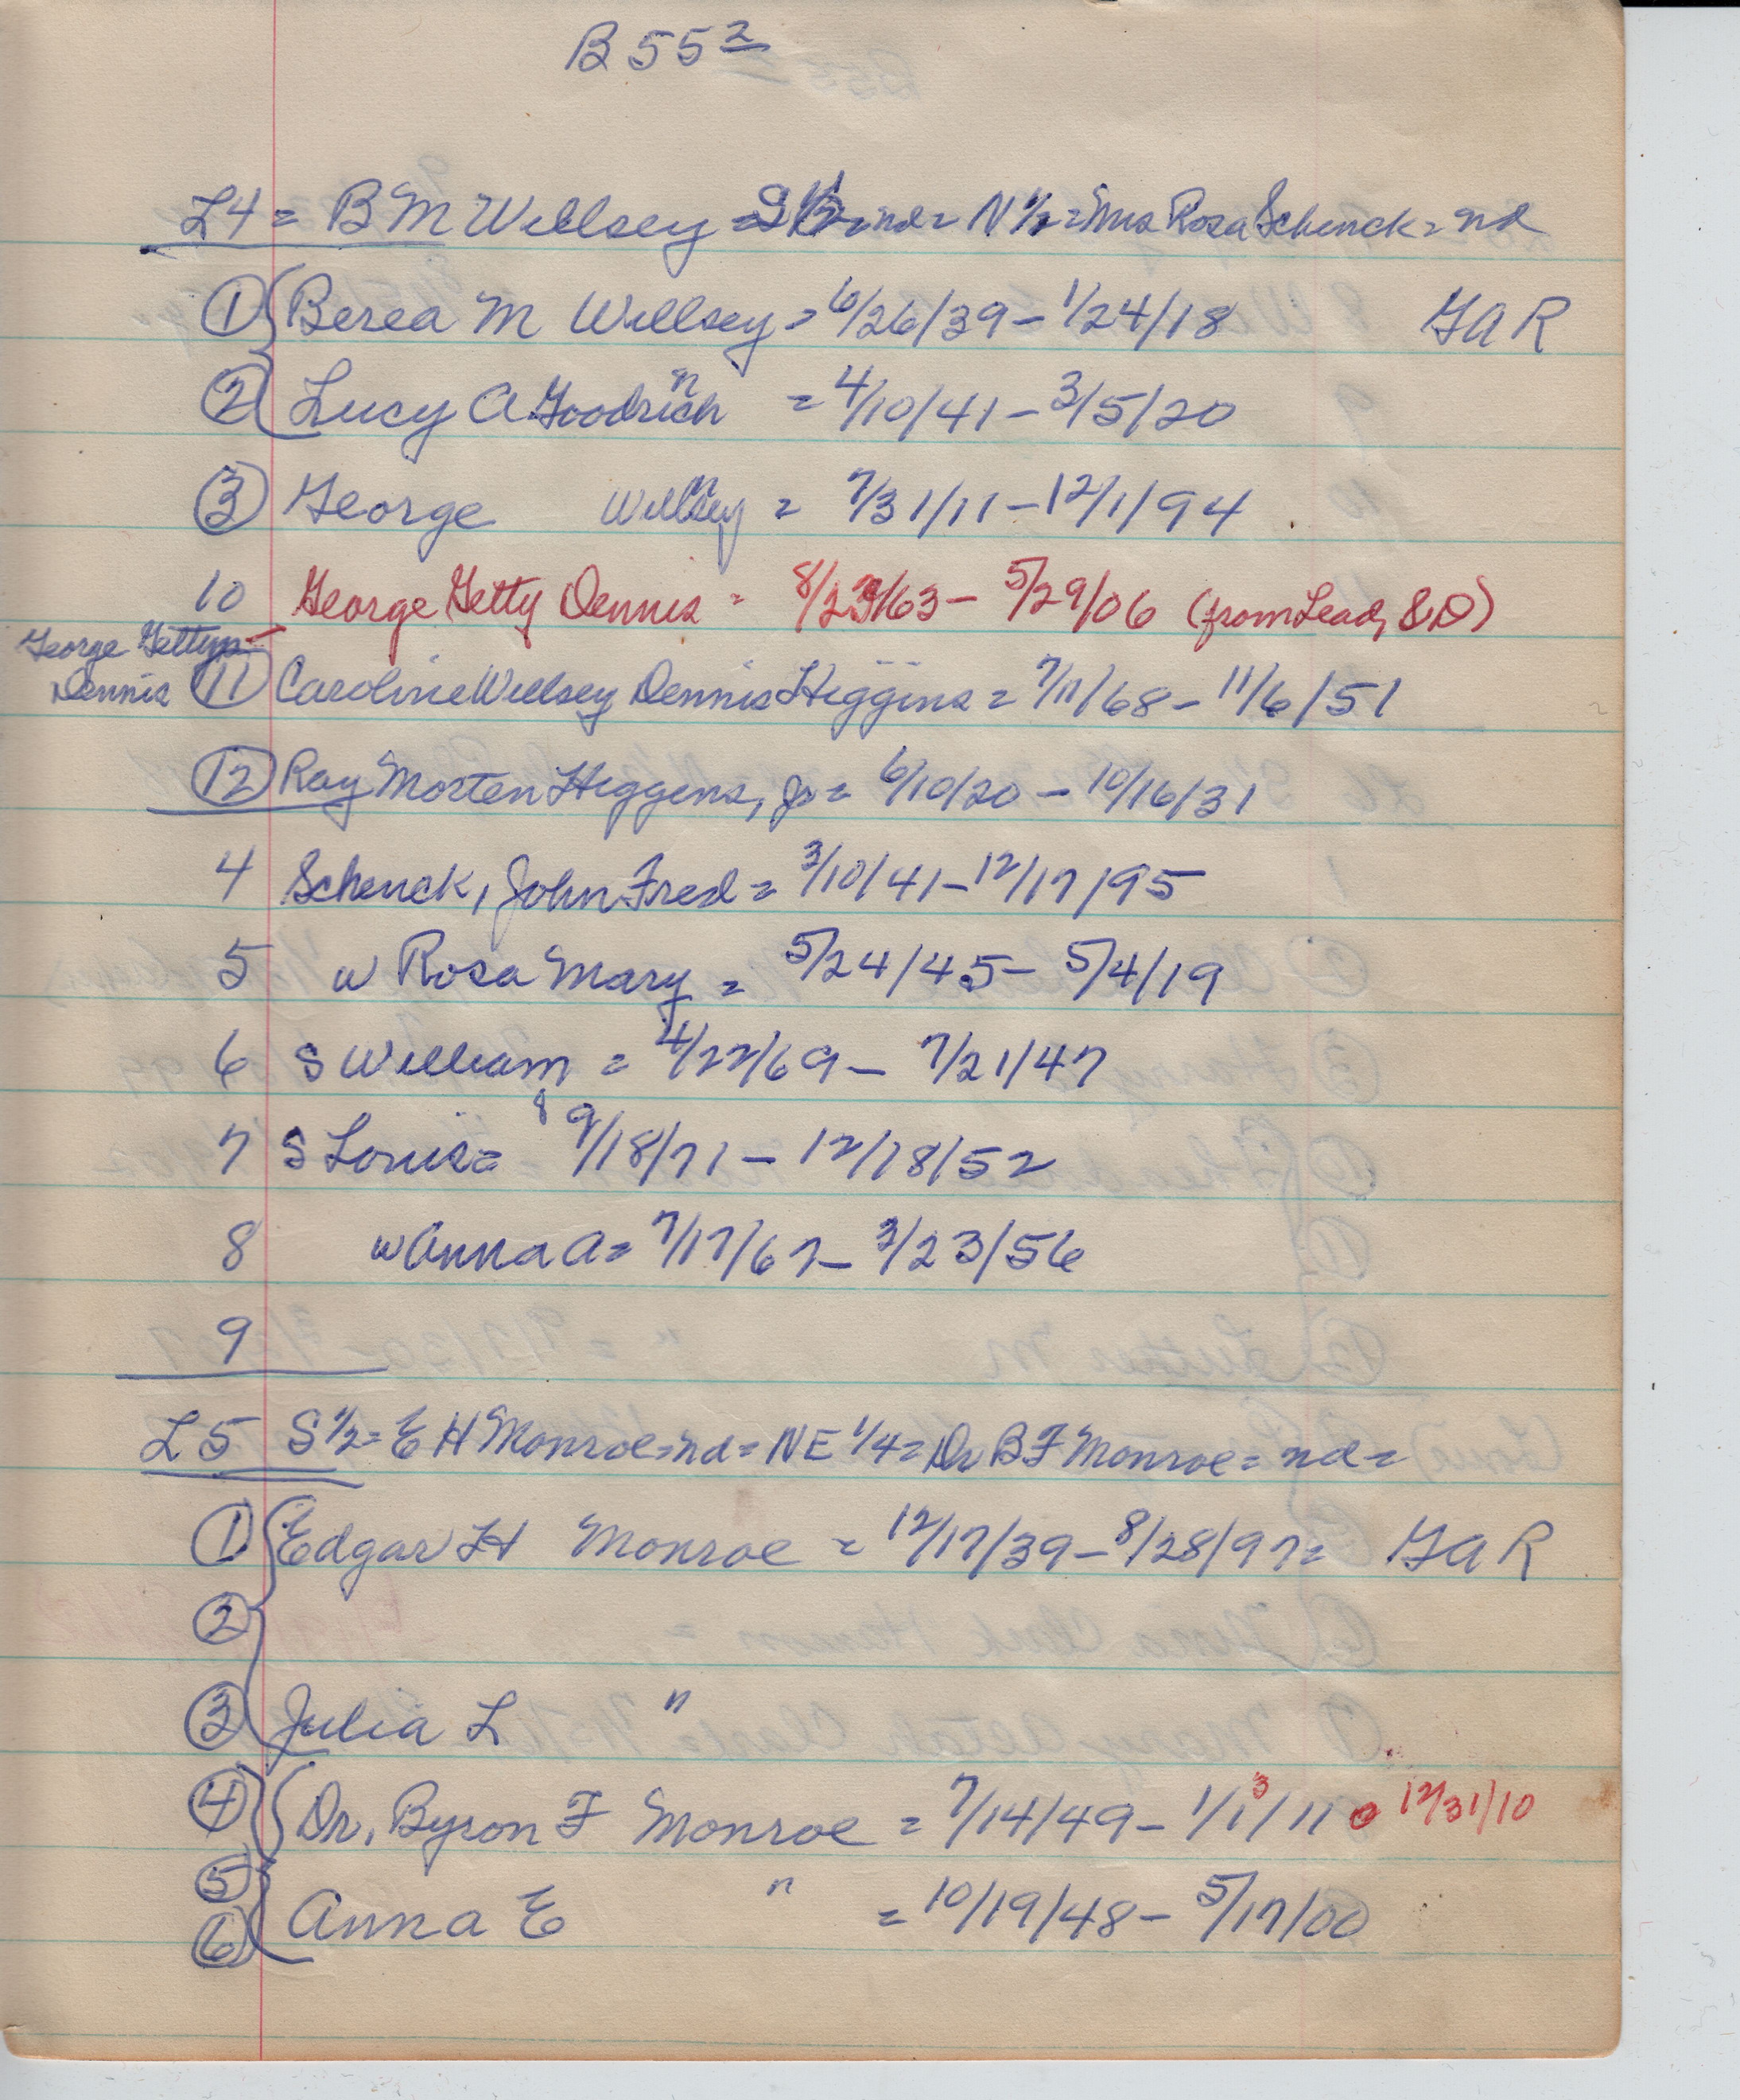 B 55 2
L4 = B M Willsey = S ½ = nd = N ½ = Mrs Rosa Schenck = nd
① Berea M Willsey = 6/26/39 – 1/24/18 G A R
② Lucy A Goodrich " = 4/10/41 – 3/5/20
③ George Willsey " = 7/31/11 – 12/1/94
10 George Getty Dennis = 8/23/63 – 5/29/06 (from Lead, S D)
George Gettys
Dennis ⑪ Caroline Willsey Dennis Higgins = 7/11/68 – 11/6/51
⑫ Ray Morten Higgens, Jr = 6/10/20 – 10/16/31
4 Schenck, John Fred = 3/10/41 – 12/17/95
5 w Rosa Mary = 5/24/45 – 5/4/19
6 S William = 4/22/69 – 7/21/47
7 S Louis = 8 9/18/71 – 12/18/52
8 w Anna A = 7/17/67 – 3/23/56
9
L5 S ½ = E H Monroe = nd = NE ¼ = Dr B F Monroe = nd =
① Edgar H Monroe = 12/17/39 – 8/28/97 = G A R
②
③ Julia L "
④ Dr. Byron F Monroe = 7/14/49 – 1/1/11 3 12/31/10
⑤
⑥ Anna E " = 10/19/48 – 5/17/00